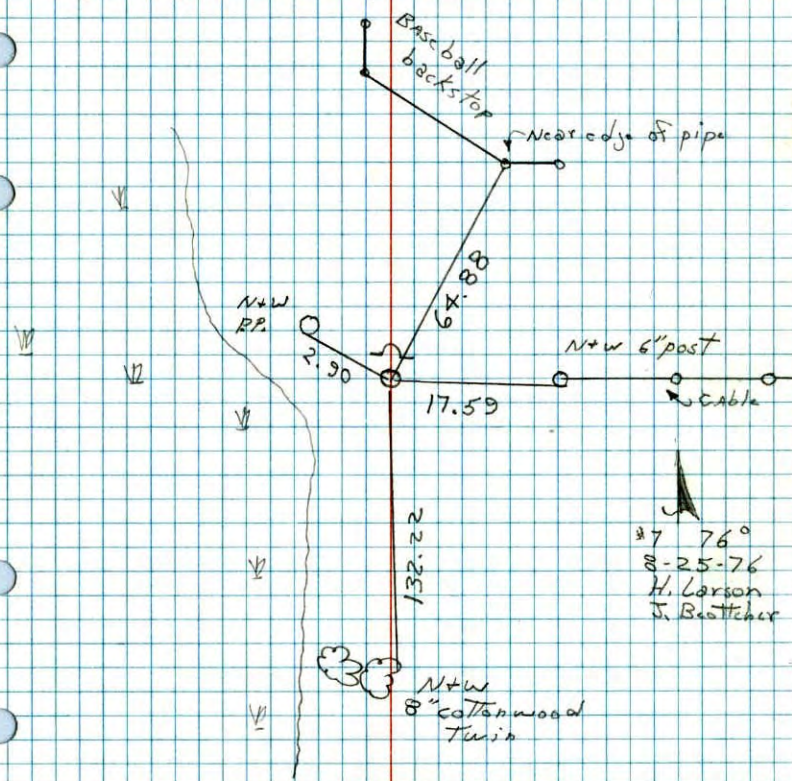 Baseball
backstop
Near edge of pipe
N+W
P.P.
64.88
2.90
N+W 6" post
17.59
Cable
132.22
#7 76°
8-25-76
H. Larson
J. Boettcher
N+W
8" cottonwood
Twin